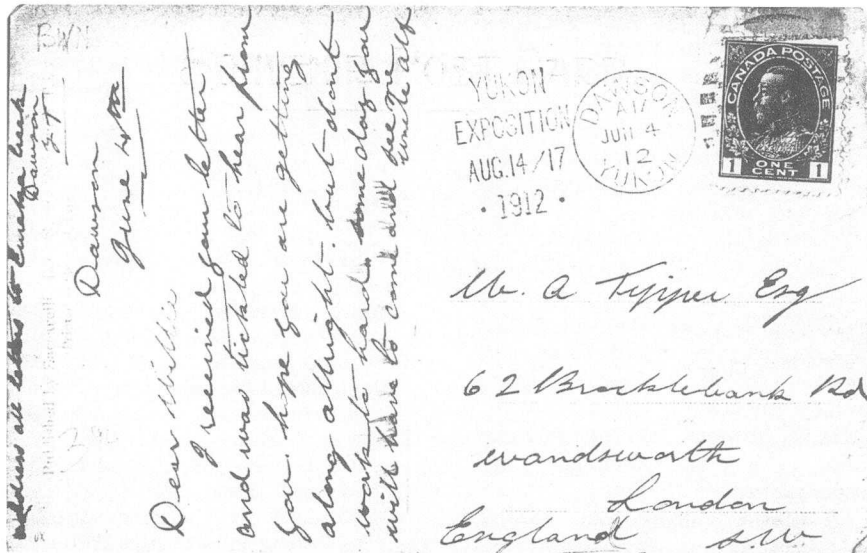 address all letters to Eureka creek
Dawson
Y.T
Dawson
June 4th
Dear Willie
I received your letter
and was tickled to hear from
you. hope you are getting
along allright. but dont
work to hard. some day you
will have to come and see me
uncle alf
YUKON
EXPOSITION
AUG.14/17
· 1912 ·
DAWSON
JUN 4
12
YUKON
CANADA POSTAGE
1 ONE CENT 1
Mr. A Tipper Esq
62 Brocklebank Rd
wandsworth
London
England S.W.